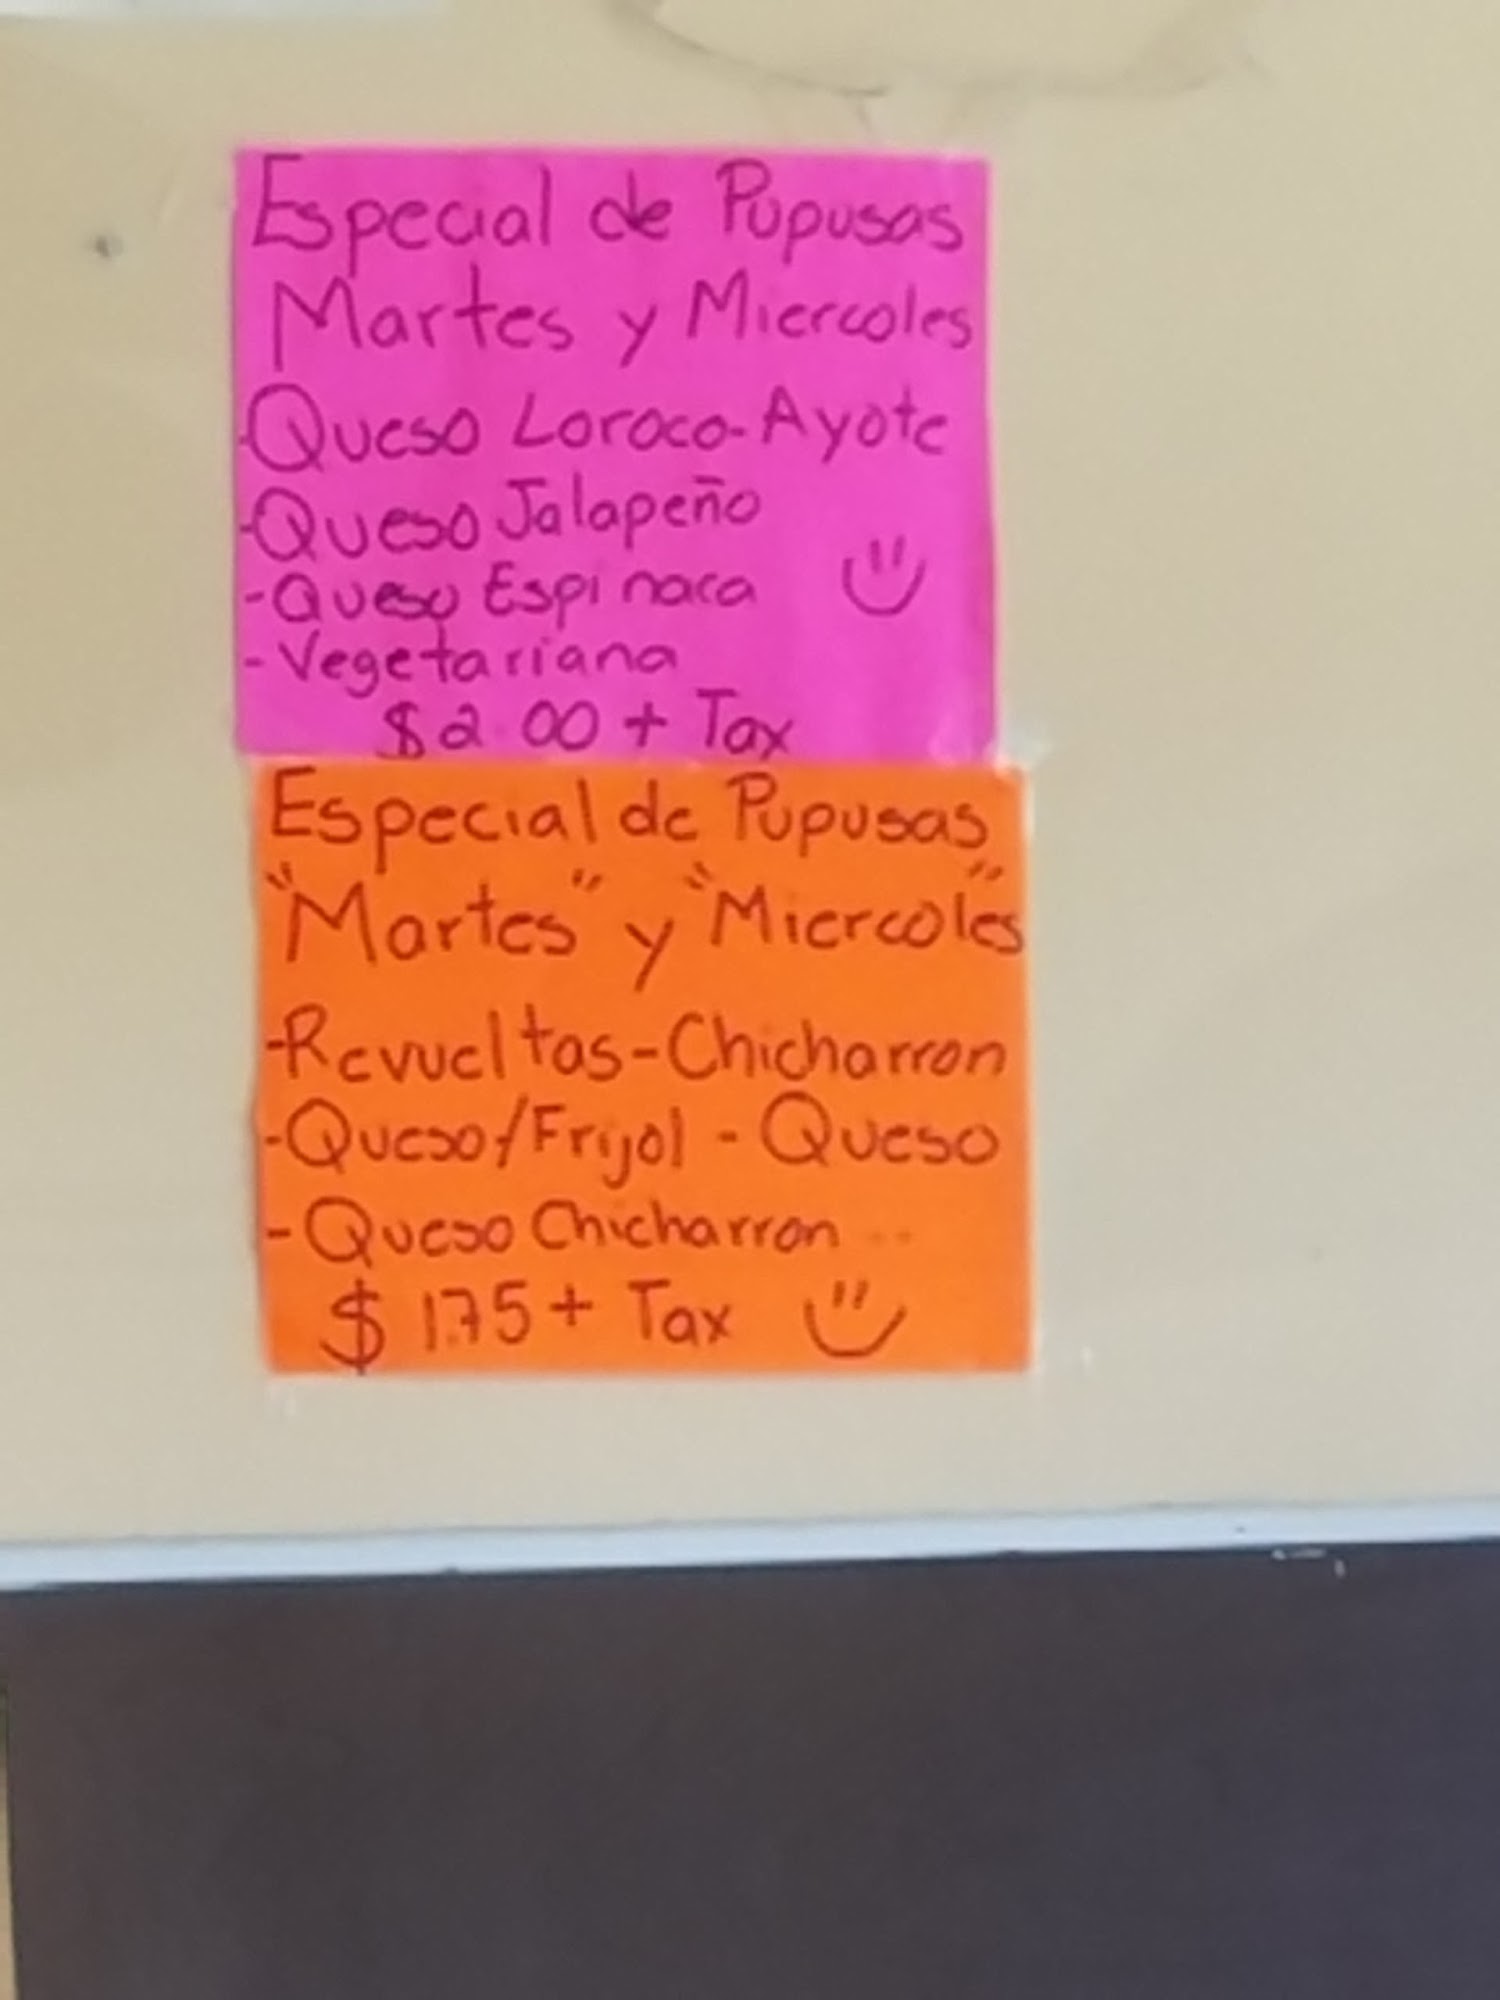 Especial de Pupusas
Martes y Miercoles
-Queso Loroco-Ayote
-Queso Jalapeño
-Queso Espinaca
-Vegetariana
$2.00 + Tax
Especial de Pupusas
"Martes" y "Miercoles"
-Revueltas-Chicharron
-Queso/Frijol - Queso
-Queso Chicharron
$1.75 + Tax